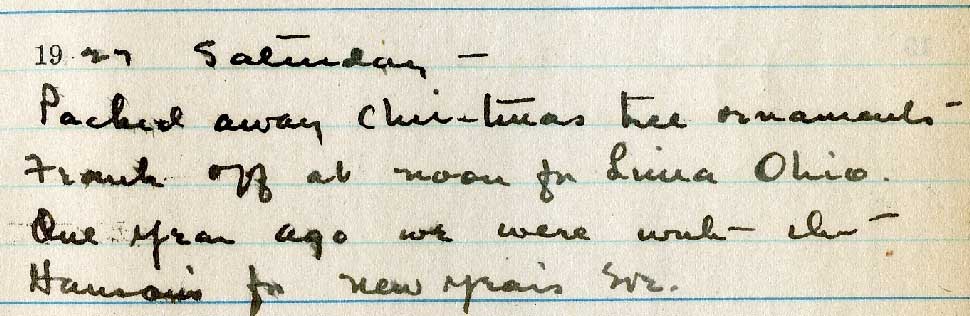 1927 Saturday —
Packed away Christmas tree ornaments
Frank off at noon for Lima Ohio.
One year ago we were with the
Hansons for new years Eve.